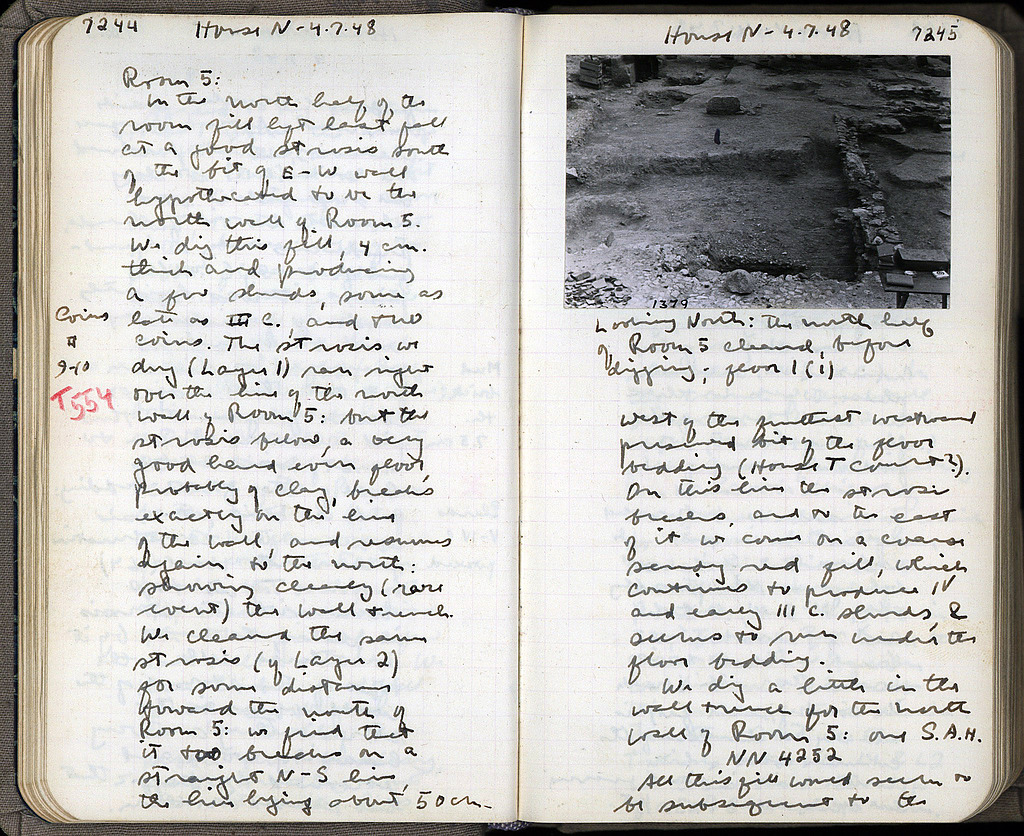 7244 House N - 4.7.48
Room 5:
In the north half of the
room fill left last fall
at a good strosis south
of the bit of E-W wall
hypothecated to be the
north wall of Room 5.
We dig this fill, 4 cm.
thick and producing
a few sherds, some as
late as III C., and two
coins. The strosis we
dug (Layer 1) ran right
over the line of the north
wall of Room 5: but the
strosis below, a very
good hard even floor,
probably of clay, breaks
exactly on the line
of the wall, and resumes
again to the north:
showing clearly (rare
event) the wall trench.
We cleaned the same
strosis (of Layer 2)
for some distance
toward the south of
Room 5: we find that
it too breaks on a
straight N-S line,
the line lying about 50 cm.
Coins
#
9-10
T554
House N - 4.7.48 7245
1379
Looking North: the north half
of Room 5 cleaned, before
digging; floor 1 (1)
west of the furthest westward
preserved bit of the floor
bedding (House T court?).
On this line the strosis
breaks, and to the east
of it we come on a coarse
sandy red fill, which
continues to produce IV
and early III C. sherds, &
seems to run under the
floor bedding.
We dig a little in the
wall trench for the north
wall of Room 5: one S.A.H.
NN 4252
All this fill would seem to
be subsequent to the